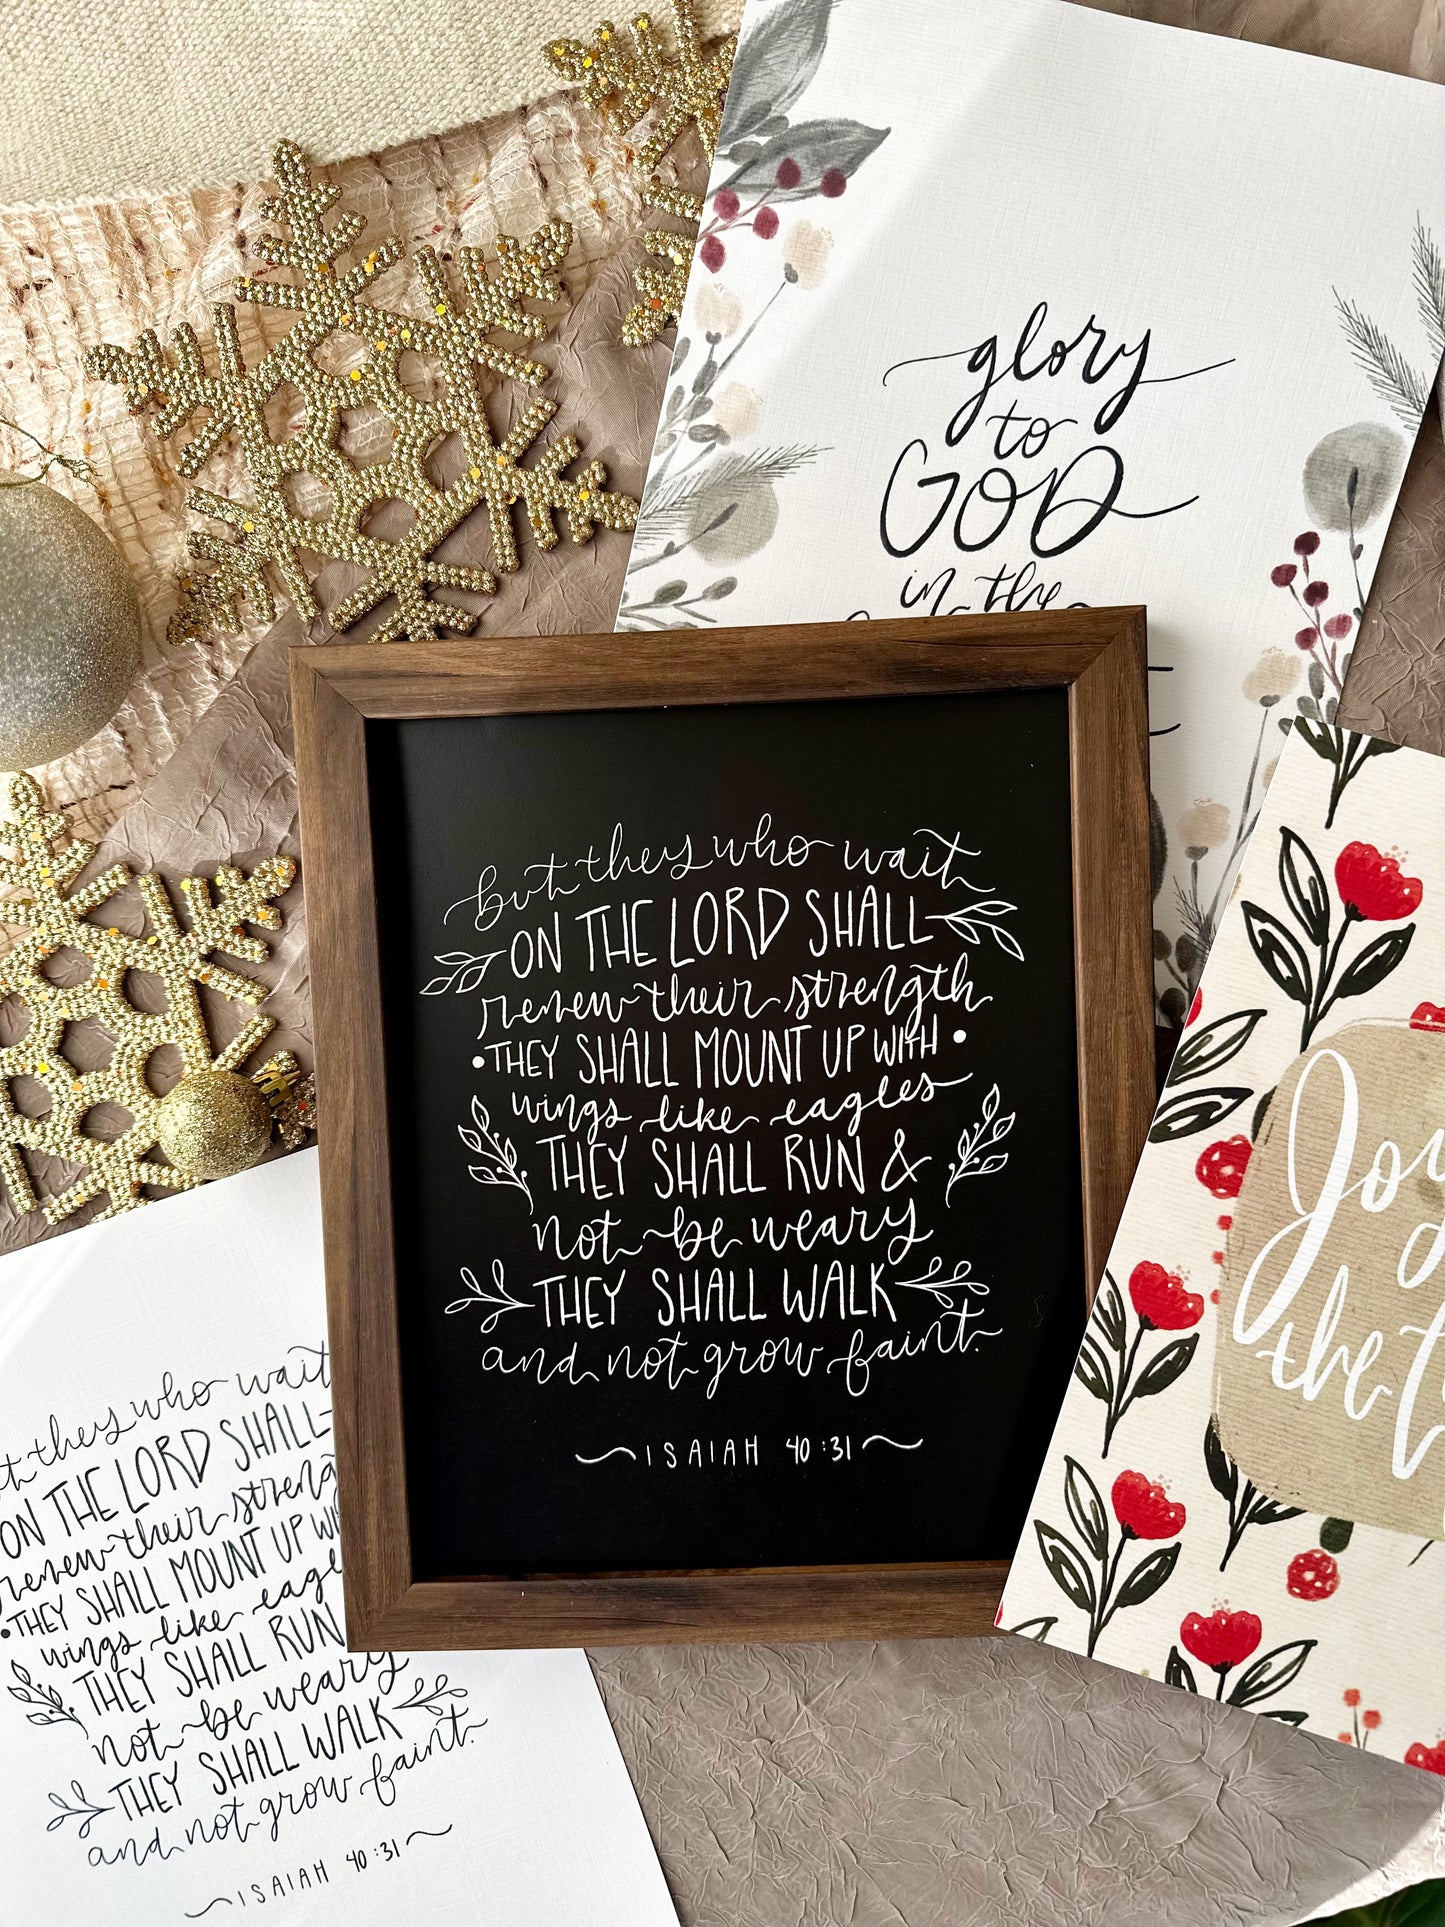 glory
to
GOD
in the
but they who wait
ON THE LORD SHALL
renew their strength
• THEY SHALL MOUNT UP WITH •
wings like eagles
THEY SHALL RUN &
not be weary
THEY SHALL WALK
and not grow faint.
ISAIAH 40:31
Joy
the
they who wait
ON THE LORD SHALL
renew their
• THEY SHALL MOUNT UP
wings like
THEY SHALL RUN
not be weary
THEY SHALL WALK
and not grow faint.
ISAIAH 40:31